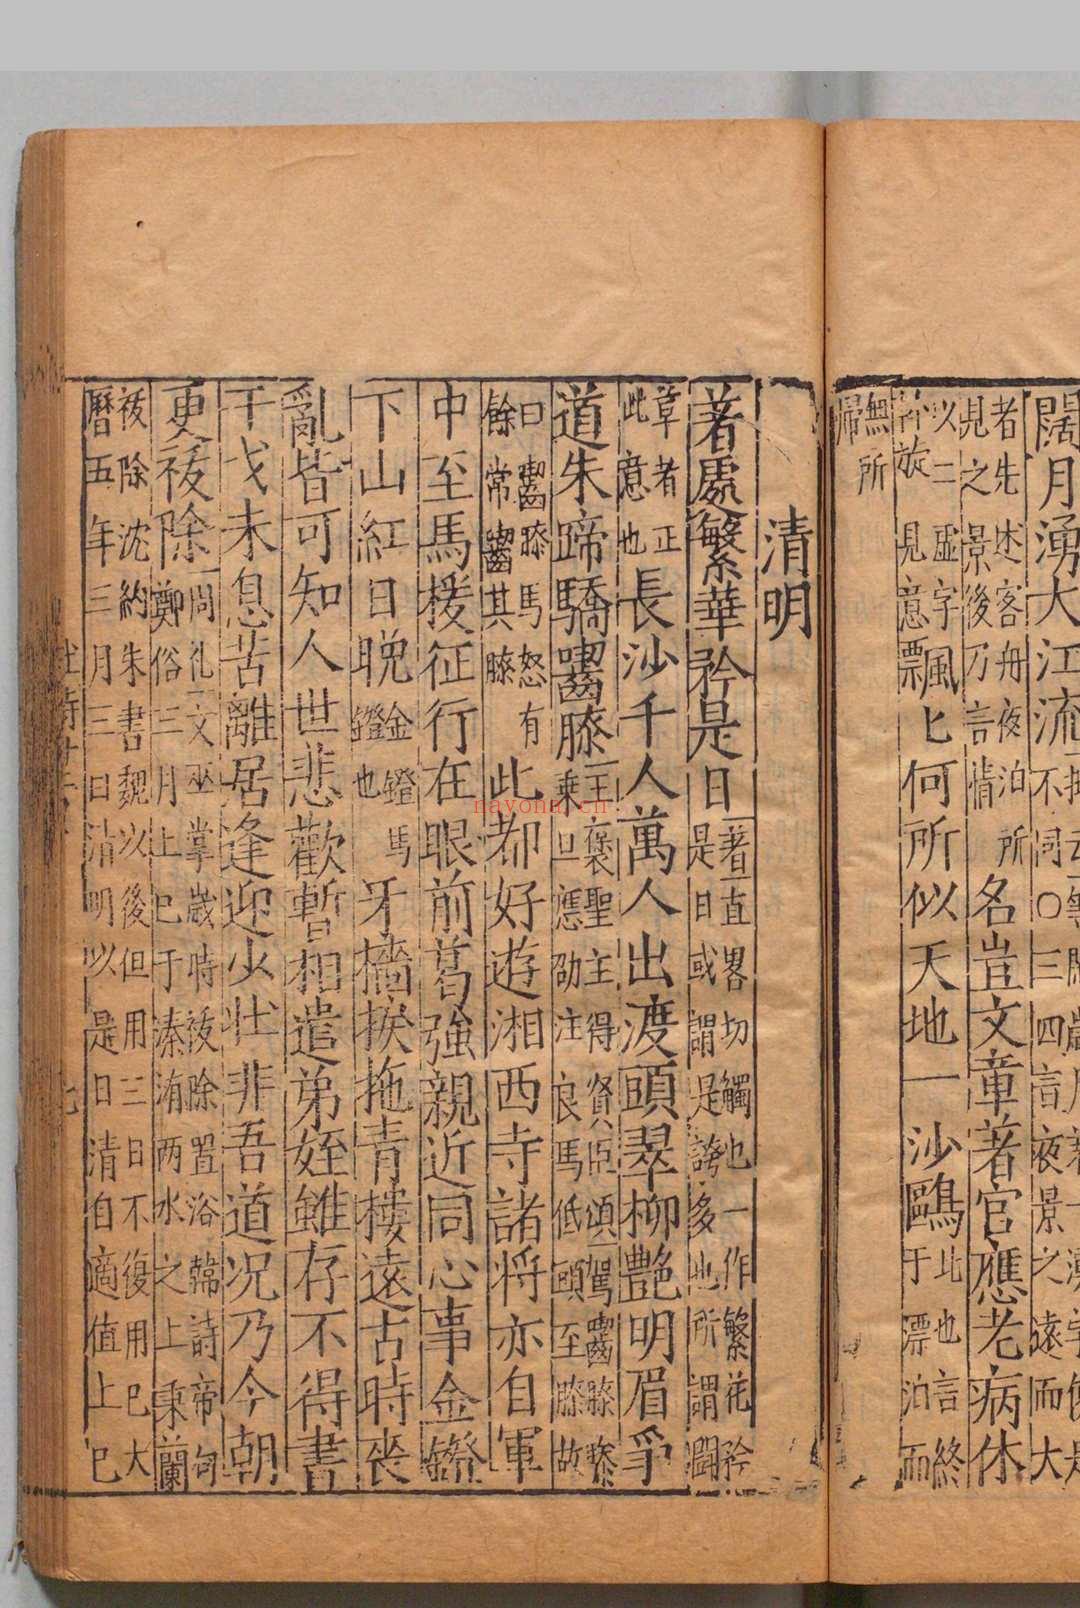 闊月湧大江流
不同○三四言夜景之遠而大
者先述客舟夜泊所
見之景後乃言情
名豈文章著官應老病休
以二虛字
斡旋見意
飄
飄
何所似天地一沙鷗
比也言終
于漂泊而
無所
歸
清明
著處繁華矜是日
著直畧切觸也一作繁花矜
是日或謂是誇多也所謂鬭
章者正
此意也
長沙千人萬人出渡頭翠柳艷明眉爭
道朱蹄驕齧膝
王褒聖主得賢臣頌駕齧膝驂
乗旦應劭注良馬低頭至膝故
曰齧膝馬怒有
餘常齧其膝
此都好遊湘西寺諸將亦自軍
中至馬援征行在眼前葛強親近同心事金鐙
下山紅日晚
金鐙馬
鐙也
牙檣捩拖青樓遠古時喪
亂皆可知人世悲歡暫相遣弟姪雖存不得書
干戈未息苦離居逢迎少壯非吾道况乃今朝
更祓除
周礼女巫掌歲時祓除置浴韓詩帝句
鄭俗三月上巳于溱洧两水之上秉蘭
祓除沈約朱書魏以後但用三日不復用巳大
曆五年三月三日清明以是日清自適值上巳
nayona.cn